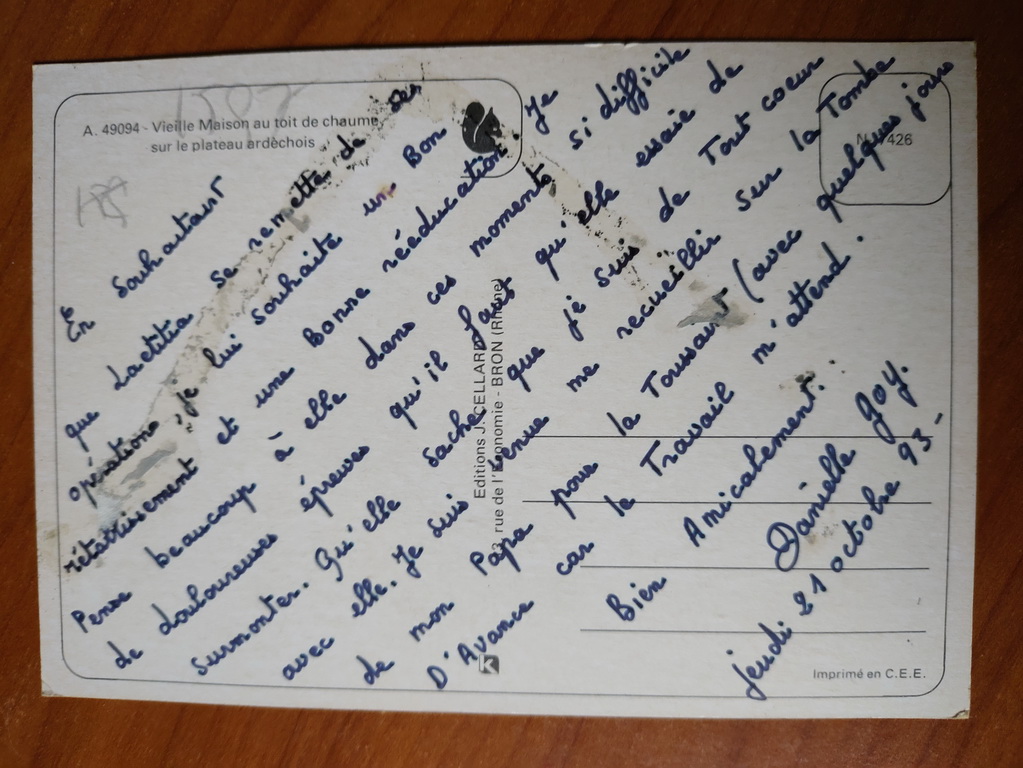 A. 49094 - Vieille Maison au toit de chaume
sur le plateau ardèchois
N° 426
En souhaitant
que Laetitia se remette de ses
opérations, je lui souhaite un Bon
rétablissement et une Bonne rééducation. Je
Pense beaucoup à elle dans ces moments si difficile
de douloureuses épreuves qu'il faut qu'elle essaie de
surmonter. Qu'elle sache que je suis de Tout coeur
avec elle. Je suis venue me recueillir sur la Tombe
de mon Papa pour la Toussaint (avec quelques jours
D'Avance car le Travail m'attend.
Bien Amicalement.
Danielle Goy.
jeudi 21 octobre 93.-
Editions J. CELLARD
rue de l'Economie - BRON (Rhône)
Imprimé en C.E.E.